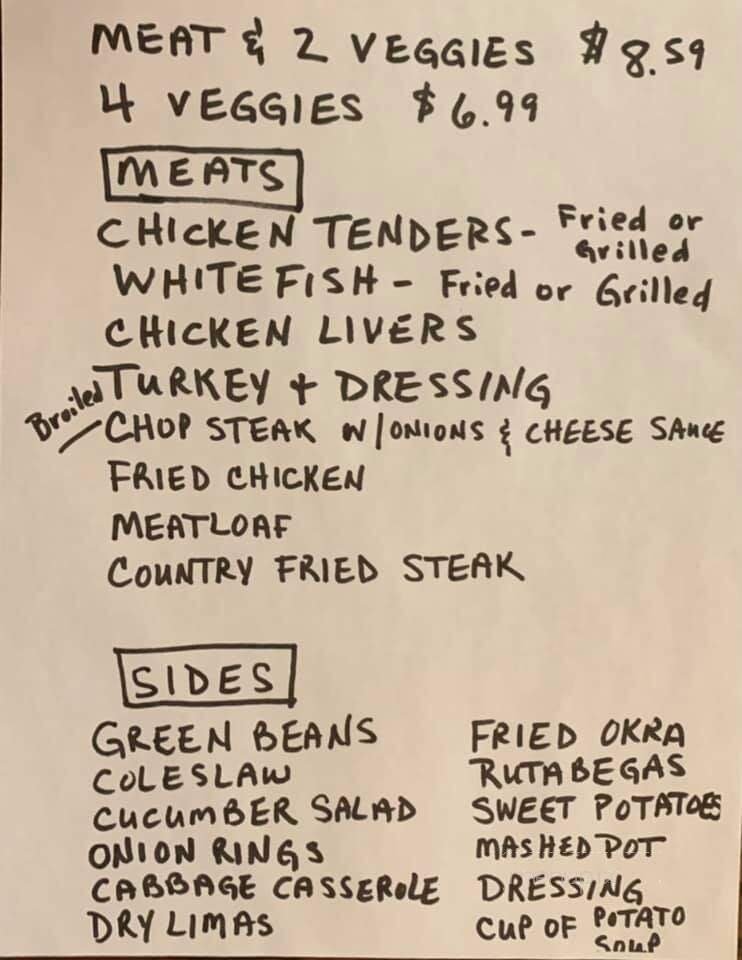 MEAT & 2 VEGGIES $8.59
4 VEGGIES $6.99
MEATS
CHICKEN TENDERS- Fried or Grilled
WHITEFISH - Fried or Grilled
CHICKEN LIVERS
TURKEY + DRESSING
Broiled CHOP STEAK W/ONIONS & CHEESE SAUCE
FRIED CHICKEN
MEATLOAF
COUNTRY FRIED STEAK
SIDES
GREEN BEANS
COLESLAW
CUCUMBER SALAD
ONION RINGS
CABBAGE CASSEROLE
DRY LIMAS
FRIED OKRA
RUTABEGAS
SWEET POTATOES
MASHED POT
DRESSING
CUP OF POTATO Soup